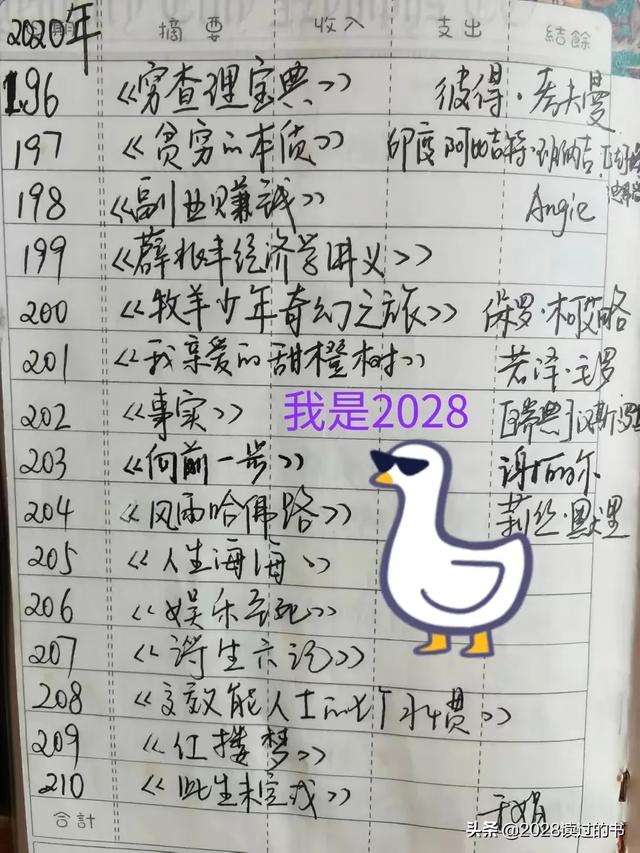 2020年 摘要 收入 支出 結餘
196 《穷查理宝典》 彼得·考夫曼
197 《贫穷的本质》 印度 阿比吉特·班纳吉
198 《副业赚钱》 Angie
199 《薛兆丰经济学讲义》
200 《牧羊少年奇幻之旅》 保罗·柯艾略
201 《我亲爱的甜橙树》 若泽·毛罗
202 《事实》 [瑞典]汉斯
我是2028
203 《向前一步》 谢丽尔
204 《风雨哈佛路》 莉丝·默里
205 《人生海海》
206 《娱乐至死》
207 《浮生六记》
208 《高效能人士的七个习惯》
209 《红楼梦》
210 《此生未完成》 于娟
合計
头条 @2028读过的书